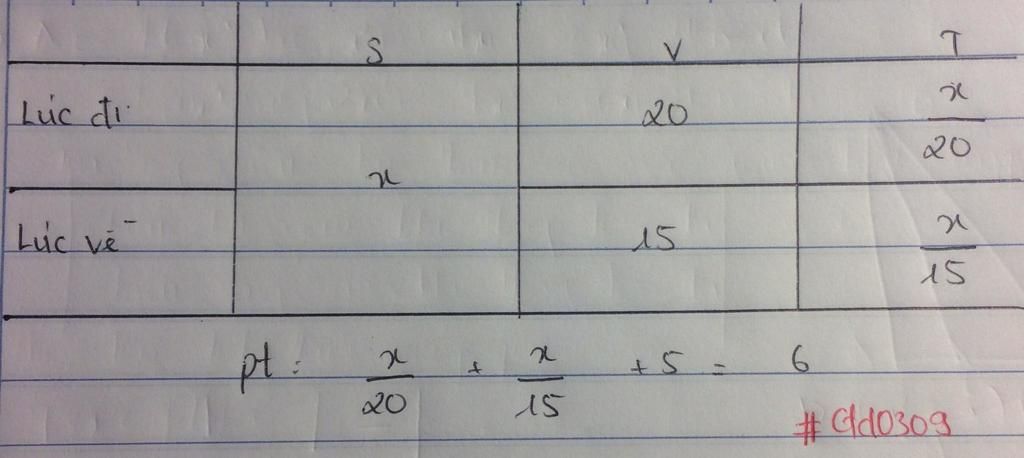 S V T
Lúc đi 20 x/20
x
Lúc về 15 x/15
pt: x/20 + x/15 + 5 = 6
#Cld0309